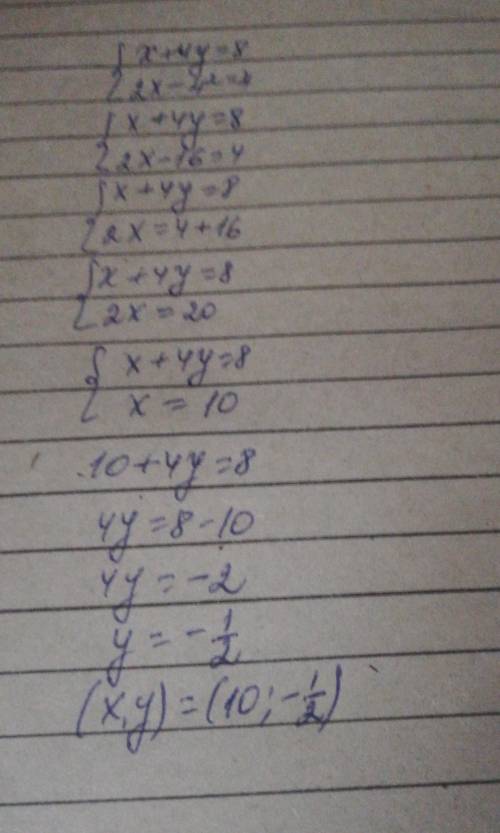 {x+4y=8
{2x-4²=4
{x+4y=8
{2x-16=4
{x+4y=8
{2x=4+16
{x+4y=8
{2x=20
{x+4y=8
{x=10
10+4y=8
4y=8-10
4y=-2
y=-1/2
(x,y)=(10;-1/2)